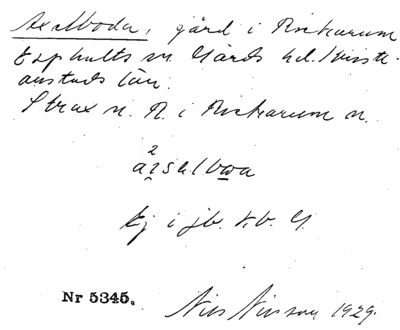 Axelboda, gård i Rickarum
Esphults sn. Gärds hd. Kristi-
anstads län.
Strax n. R. i Rickarum n.
2
Ej i jb. V.b. G.
Nr 5345. Nils Nilsson 1929.